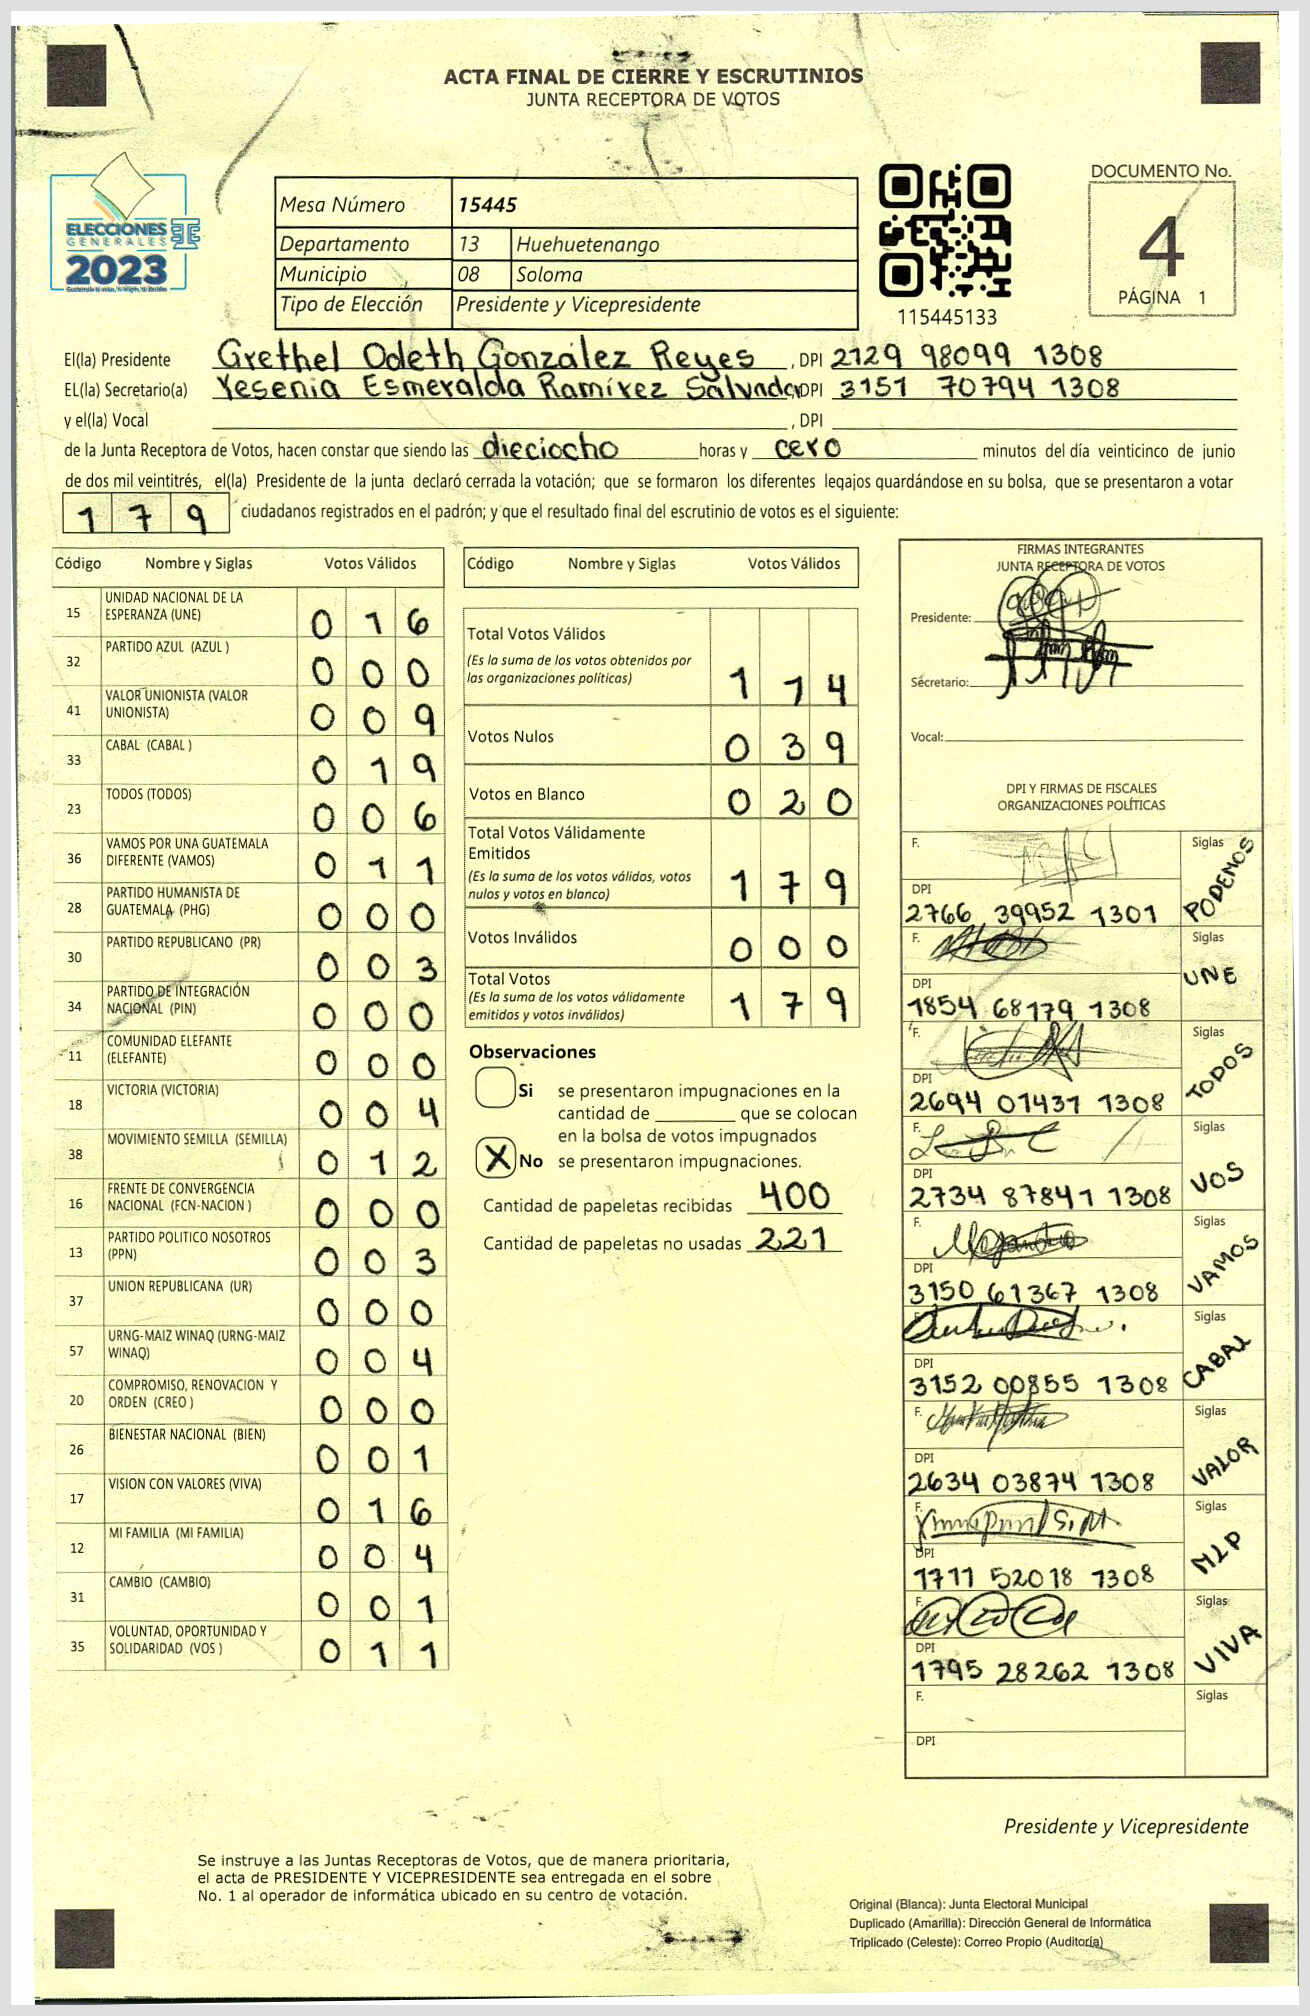 ACTA FINAL DE CIERRE Y ESCRUTINIOS
JUNTA RECEPTORA DE VOTOS
ELECCIONES
GENERALES
2023
Mesa Número 15445
Departamento 13 Huehuetenango
Municipio 08 Soloma
Tipo de Elección Presidente y Vicepresidente
115445133
DOCUMENTO No.
4
PÁGINA 1
El(la) Presidente Grethel Odeth González Reyes , DPI 2129 98099 1308
EL(la) Secretario(a) Yesenia Esmeralda Ramírez Salvador DPI 3151 70794 1308
y el(la) Vocal , DPI
de la Junta Receptora de Votos, hacen constar que siendo las dieciocho horas y cero minutos del día veinticinco de junio
de dos mil veintitrés, el(la) Presidente de la junta declaró cerrada la votación; que se formaron los diferentes legajos guardándose en su bolsa, que se presentaron a votar
179 ciudadanos registrados en el padrón; y que el resultado final del escrutinio de votos es el siguiente:
Código Nombre y Siglas Votos Válidos
15 UNIDAD NACIONAL DE LA
ESPERANZA (UNE) 016
32 PARTIDO AZUL (AZUL ) 000
41 VALOR UNIONISTA (VALOR
UNIONISTA) 009
33 CABAL (CABAL ) 019
23 TODOS (TODOS) 006
36 VAMOS POR UNA GUATEMALA
DIFERENTE (VAMOS) 011
28 PARTIDO HUMANISTA DE
GUATEMALA (PHG) 000
30 PARTIDO REPUBLICANO (PR) 003
34 PARTIDO DE INTEGRACIÓN
NACIONAL (PIN) 000
11 COMUNIDAD ELEFANTE
(ELEFANTE) 000
18 VICTORIA (VICTORIA) 004
38 MOVIMIENTO SEMILLA (SEMILLA) 012
16 FRENTE DE CONVERGENCIA
NACIONAL (FCN-NACION ) 000
13 PARTIDO POLITICO NOSOTROS
(PPN) 003
37 UNION REPUBLICANA (UR) 000
57 URNG-MAIZ WINAQ (URNG-MAIZ
WINAQ) 004
20 COMPROMISO, RENOVACION Y
ORDEN (CREO ) 000
26 BIENESTAR NACIONAL (BIEN) 001
17 VISION CON VALORES (VIVA) 016
12 MI FAMILIA (MI FAMILIA) 004
31 CAMBIO (CAMBIO) 001
35 VOLUNTAD, OPORTUNIDAD Y
SOLIDARIDAD (VOS ) 011
Código Nombre y Siglas Votos Válidos
Total Votos Válidos
(Es la suma de los votos obtenidos por
las organizaciones políticas) 114
Votos Nulos 039
Votos en Blanco 020
Total Votos Válidamente
Emitidos
(Es la suma de los votos válidos, votos
nulos y votos en blanco) 179
Votos Inválidos 000
Total Votos
(Es la suma de los votos válidamente
emitidos y votos inválidos) 179
Observaciones
Si se presentaron impugnaciones en la
cantidad de que se colocan
en la bolsa de votos impugnados
X No se presentaron impugnaciones.
Cantidad de papeletas recibidas 400
Cantidad de papeletas no usadas 221
FIRMAS INTEGRANTES
JUNTA RECEPTORA DE VOTOS
Presidente:
Secretario:
Vocal:
DPI Y FIRMAS DE FISCALES
ORGANIZACIONES POLÍTICAS
F. Siglas PODEMOS
DPI
2766 39952 1301
F. Siglas UNE
DPI
1854 68179 1308
F. Siglas TODOS
DPI
2694 01431 1308
F. Siglas VOS
DPI
2734 87841 1308
F. Siglas VAMOS
DPI
3150 61367 1308
Siglas CABAL
DPI
3152 00855 1308
F. Siglas VALOR
DPI
2634 03874 1308
F. Siglas MLP
DPI
1711 52018 1308
F. Siglas VIVA
DPI
1795 28262 1308
F. Siglas
DPI
Presidente y Vicepresidente
Se instruye a las Juntas Receptoras de Votos, que de manera prioritaria,
el acta de PRESIDENTE Y VICEPRESIDENTE sea entregada en el sobre
No. 1 al operador de informática ubicado en su centro de votación.
Original (Blanca): Junta Electoral Municipal
Duplicado (Amarilla): Dirección General de Informática
Triplicado (Celeste): Correo Propio (Auditoría)